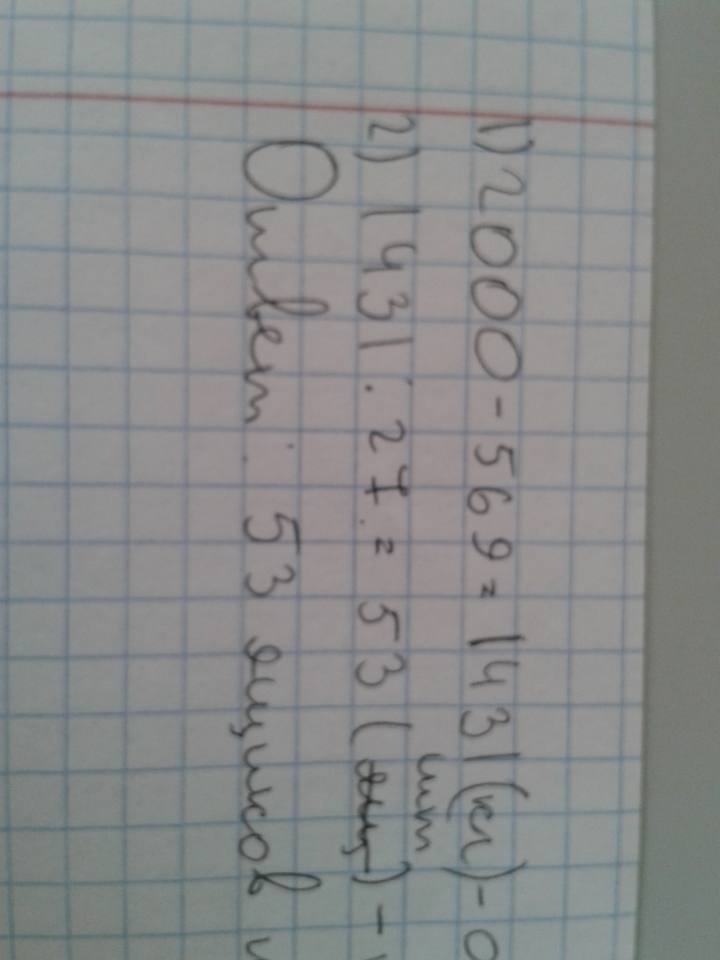 1) 2000 - 569 = 1431 (кг) - о
2) 1431 : 27 = 53 (шт) -
Ответ: 53 ящиков